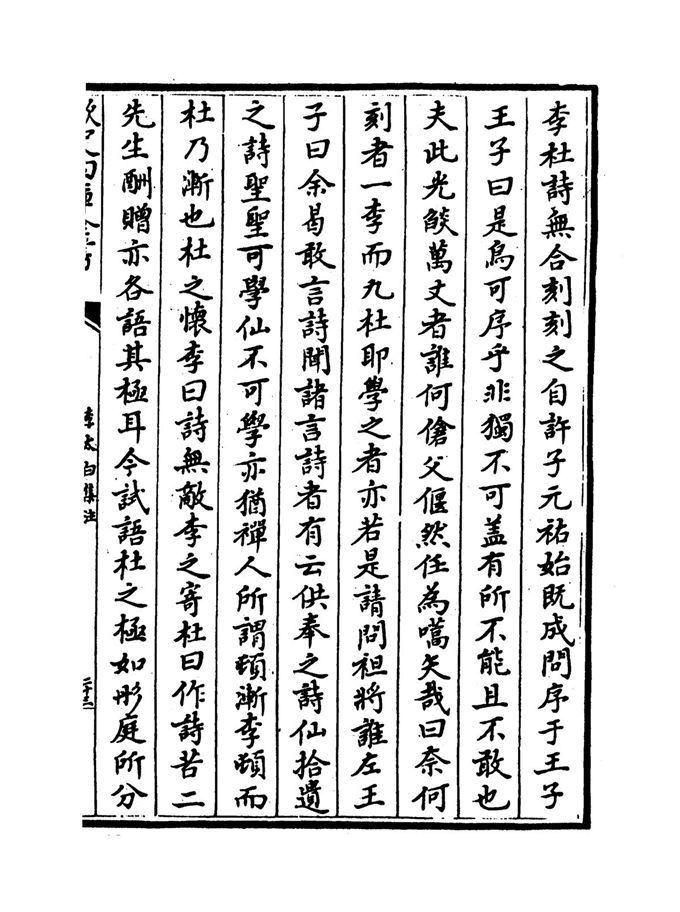 李杜詩無合刻刻之自許子元祐始既成問序于王子
王子曰是烏可序乎非獨不可盖有所不能且不敢也
夫此光燄萬丈者誰何傖父偃然任為嚆矢哉曰奈何
刻者一李而九杜耶學之者亦若是請問袒將誰左王
子曰余曷敢言詩聞諸言詩者有云供奉之詩仙拾遺
之詩聖聖可學仙不可學亦猶禪人所謂頓漸李頓而
杜乃漸也杜之懷李曰詩無敵李之寄杜曰作詩苦二
先生酬贈亦各語其極耳今試語杜之極如彤庭所分
李太白集注